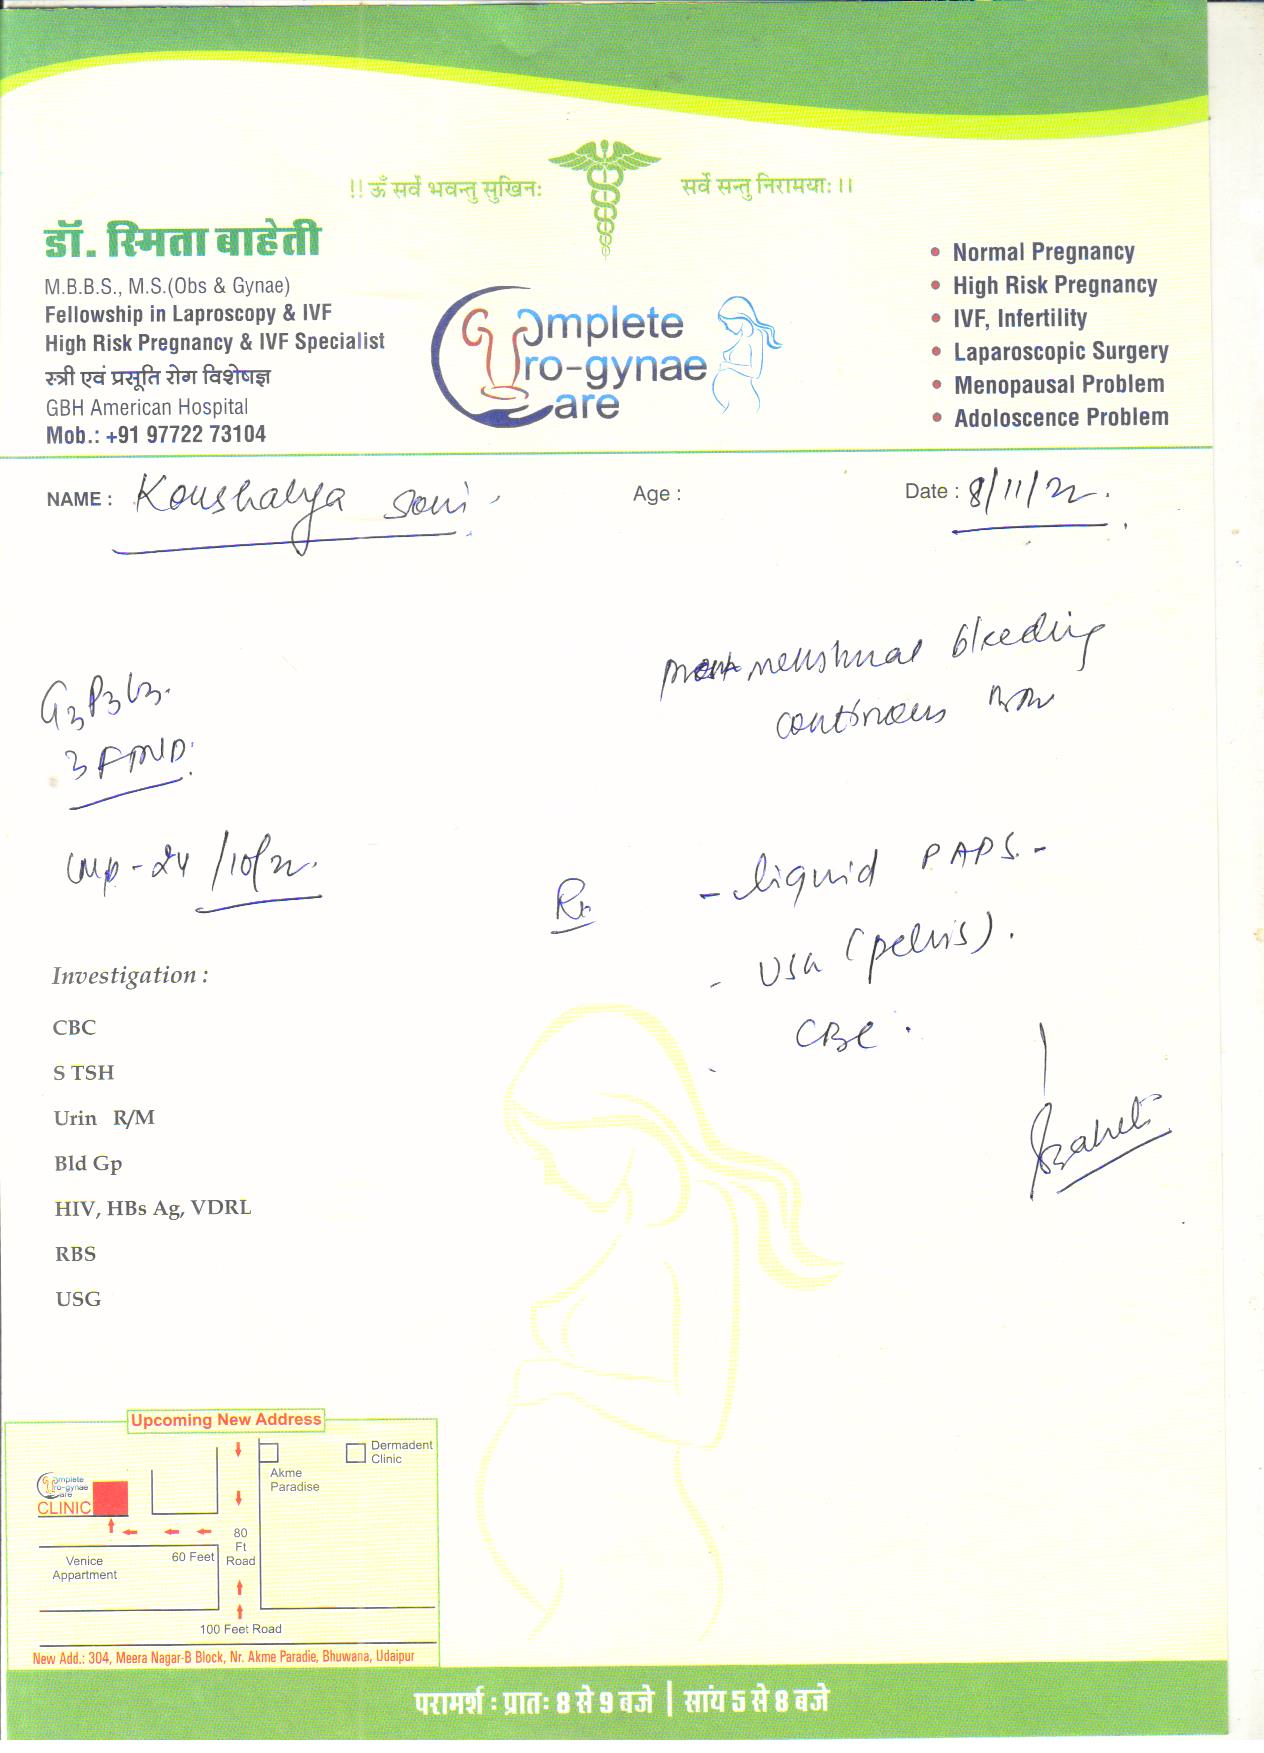 !! ॐ सर्वे भवन्तु सुखिनः सर्वे सन्तु निरामयाः ।।
डॉ. स्मिता बाहेती
M.B.B.S., M.S.(Obs & Gynae)
Fellowship in Laproscopy & IVF
High Risk Pregnancy & IVF Specialist
स्त्री एवं प्रसूति रोग विशेषज्ञ
GBH American Hospital
Mob.: +91 97722 73104
Complete
Uro-gynae
Care
• Normal Pregnancy
• High Risk Pregnancy
• IVF, Infertility
• Laparoscopic Surgery
• Menopausal Problem
• Adoloscence Problem
NAME : Koushalya Soni
Age :
Date : 8/11/22.
menstrual bleeding
continous
G3P3L3.
3 FTND.
LMP - 24/10/22.
Rx
- liquid PAPS. -
- USG (pelvis).
- CBC.
Baheti
Investigation :
CBC
S TSH
Urin R/M
Bld Gp
HIV, HBs Ag, VDRL
RBS
USG
Upcoming New Address
Complete
Uro-gynae
Care
CLINIC
Akme
Paradise
Dermadent
Clinic
80
Ft
Road
60 Feet
Venice
Appartment
100 Feet Road
New Add.: 304, Meera Nagar-B Block, Nr. Akme Paradie, Bhuwana, Udaipur
परामर्श : प्रातः 8 से 9 बजे | सांय 5 से 8 बजे